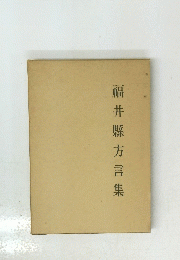 福井縣方言集